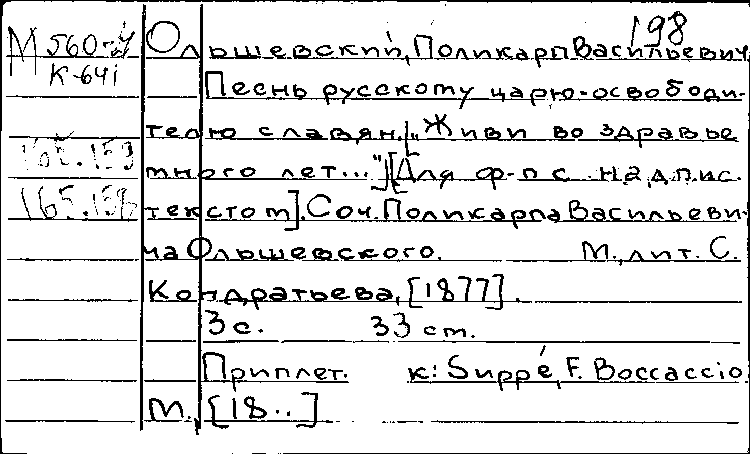 198
М 560-4 Ольшевский, Поликарп Васильевич
К-641
Песнь русскому царю-освободи-
телю славян. „Живи во здравье
много лет..." [Для ф-п с надпис.
165.158 текстом]. Соч. Поликарпа Васильеви-
ча Ольшевского. М., лит. С.
Кондратьева, [1877].
3 с. 33 см.
Приплет. к: Suppé, F. Boccaccio.
М., [18..]